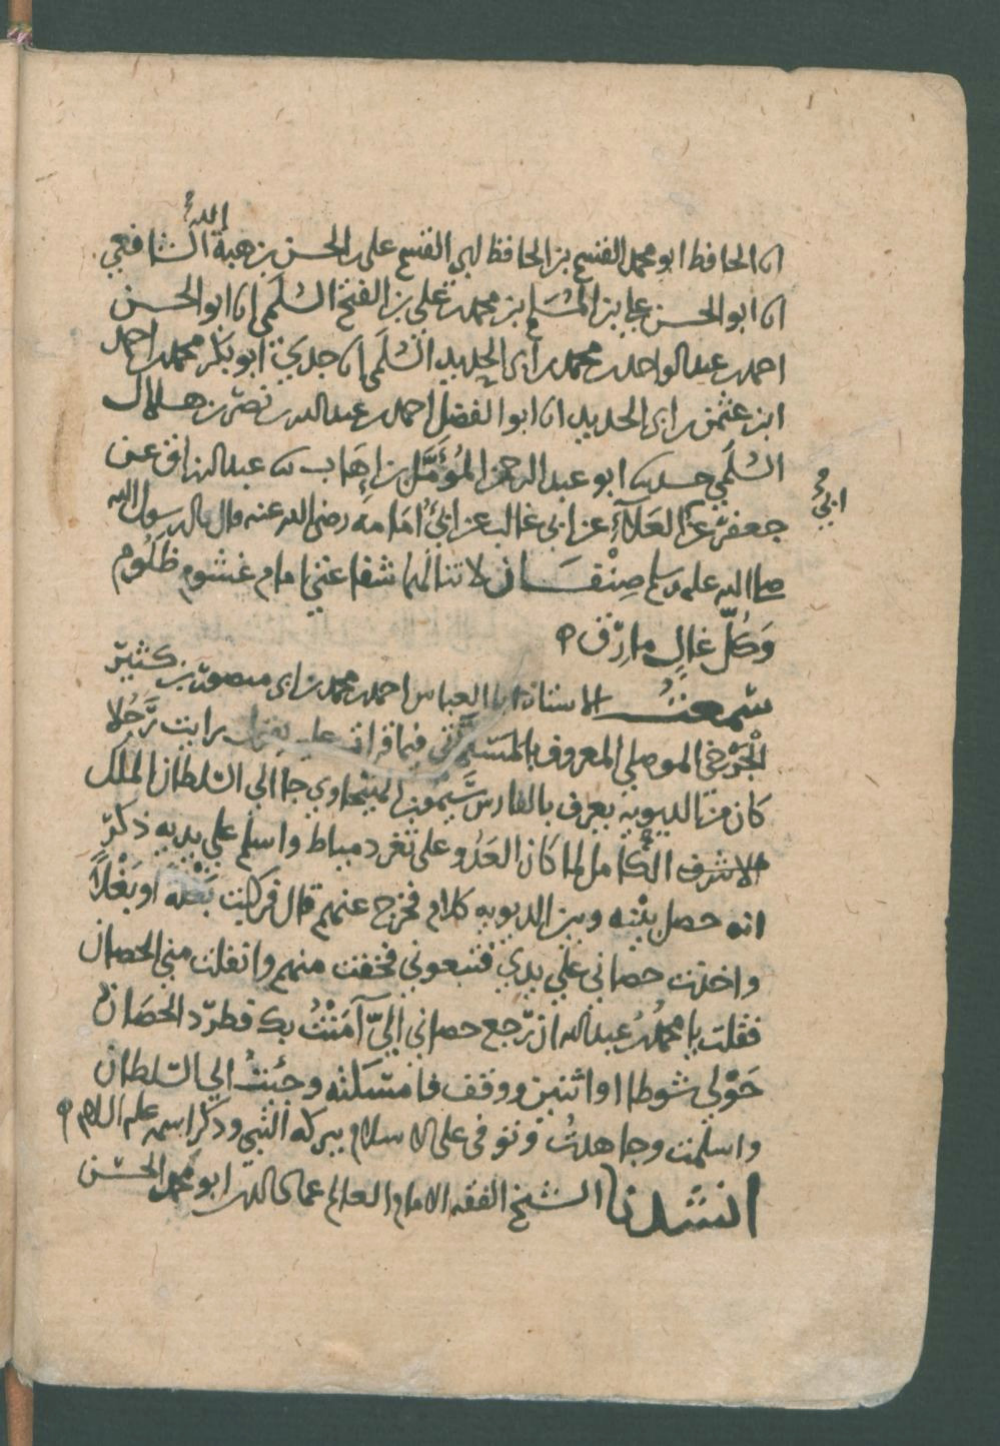 انا الحافظ ابو محمد القسم بن الحافظ ابي القسم على بن الحسن بن هبة الله الشافعي
انا ابو الحسن علي بن المُسَلم بن محمد بن علي بن الفتح السُلَمي انا ابو الحسن
احمد بن عبد الواحد بن محمد بن ابي الحديد السُلَمي انا جدي ابو بكر محمد بن احمد
ابن عثمن بن ابي الحديد انا ابو الفضل احمد بن عبد الله بن نصر بن هلال
السُلَمي حدثنا ابو عبد الرحمن المُؤَمَّل بن إِهَاب نا عبد الرزاق عن
جعفر عن العَلَآءِ عن ابي غالب عن ابي أُمَامه رضى الله عنه قال قال رسول الله
ابي
صلى الله عليه وسلم صِنْفَان لا تنالهما شفاعتي امام غشوم ظَلُوم
وَكُلّ غالٍ مارِق
سَمعتُ الاستاذ ابا العباس احمد بن محمد بن ابي منصور بن كثير
الْجَزَري الموصلي المعروف فيما قرات عليه رايت رَجُلا
كان من الديوية يعرف بالفارس جا الى السلطان الملك
الاشرف الكامل لما كان العَدُو على ثغر دمياط واسلم على يديه ذكر
انه حصل بيْنه وبين الديويه كلام فخرج عنهم قال فركبت بَغْلَه او بَغْلاً
واخذت حصاني على يدي فتبعوني فخفت منهم وانفلت مني الحصان
فقلت يا محمدُ بن عبد الله ان رَجع حصاني اليّ آمَنْتُ بك فطرد الحصَان
حَوْلي شوطا او اثنين ووقف فامسَكته وجئتُ الى السلطان
واسلمت وجاهدتُ وتوفى على الاسلام ببركه النبي وذكر اسمه عليه السلام
انشدنا الشيخ الفقيه الامام العالم ابو محمد الحسن